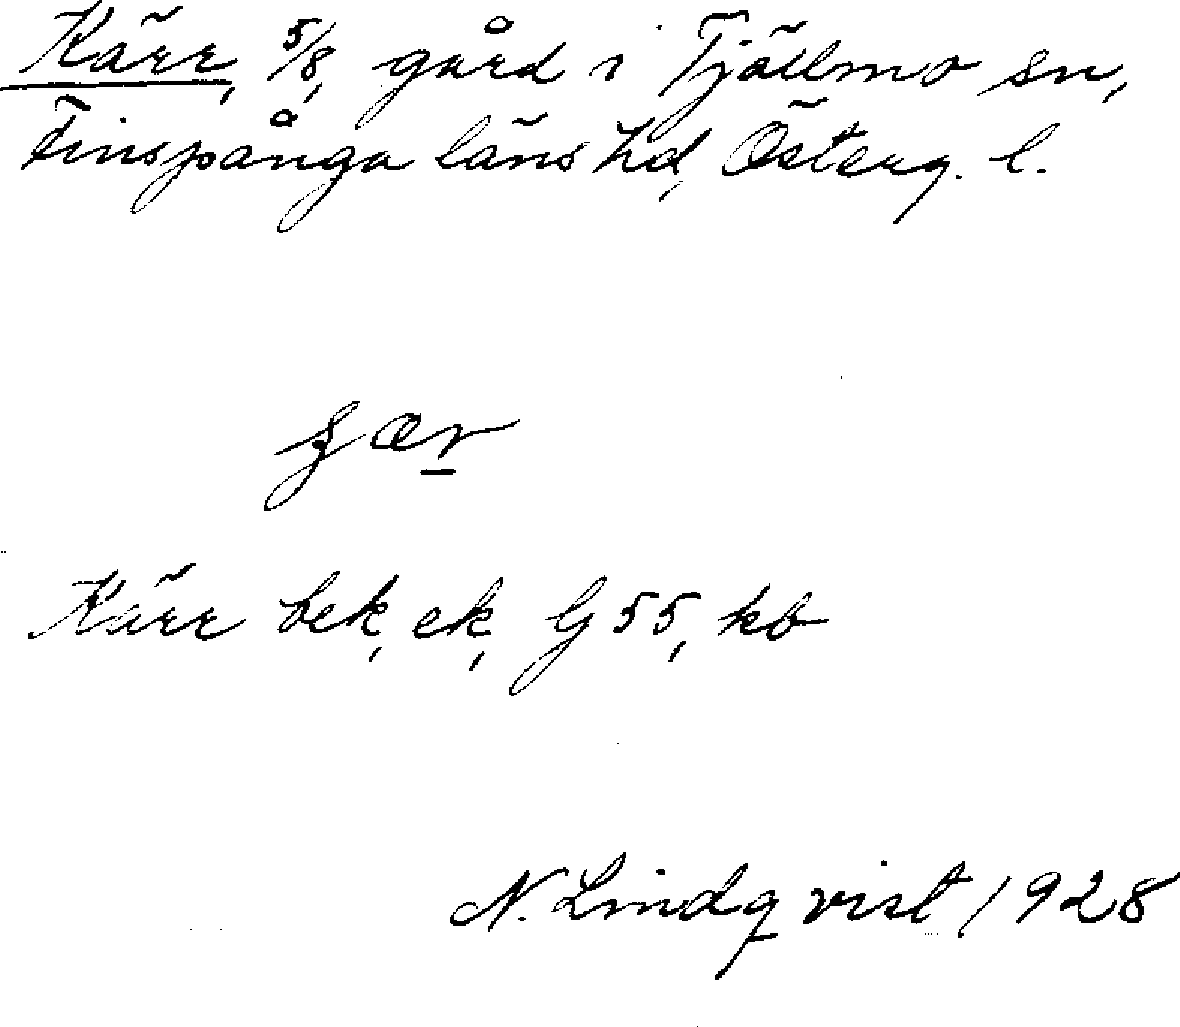 Kärr, 5/8, gård i Tjällmo sn,
Finspånga läns hd, Österg. l.
Kärr bek, ek, G 55, kb
N. Lindqvist 1928